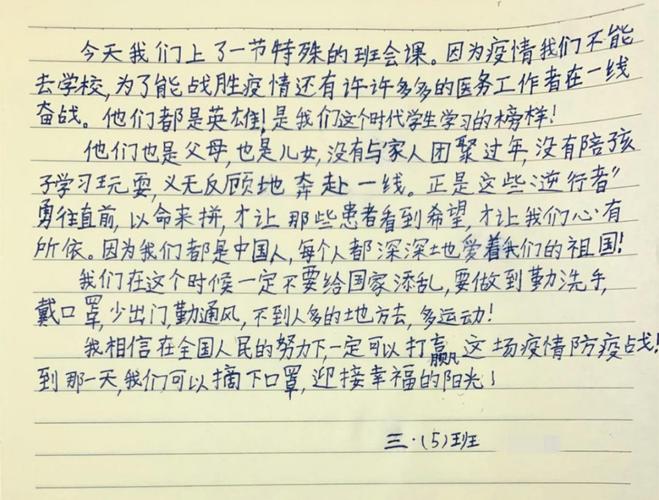 今天我们上了一节特殊的班会课。因为疫情我们不能
去学校,为了能战胜疫情还有许许多多的医务工作者在一线
奋战。他们都是英雄!是我们这个时代学生学习的榜样!
他们也是父母,也是儿女,没有与家人团聚过年,没有陪孩
子学习玩耍,义无反顾地奔赴一线。正是这些“逆行者”
勇往直前,以命来拼,才让那些患者看到希望,才让我们心有
所依。因为我们都是中国人,每个人都深深地爱着我们的祖国!
我们在这个时候一定不要给国家添乱,要做到勤洗手,
戴口罩,少出门,勤通风,不到人多的地方去,多运动!
我相信在全国人民的努力下,一定可以打赢这场疫情防疫战!
到那一天,我们可以摘下口罩,迎接幸福的阳光!
三·(5)班